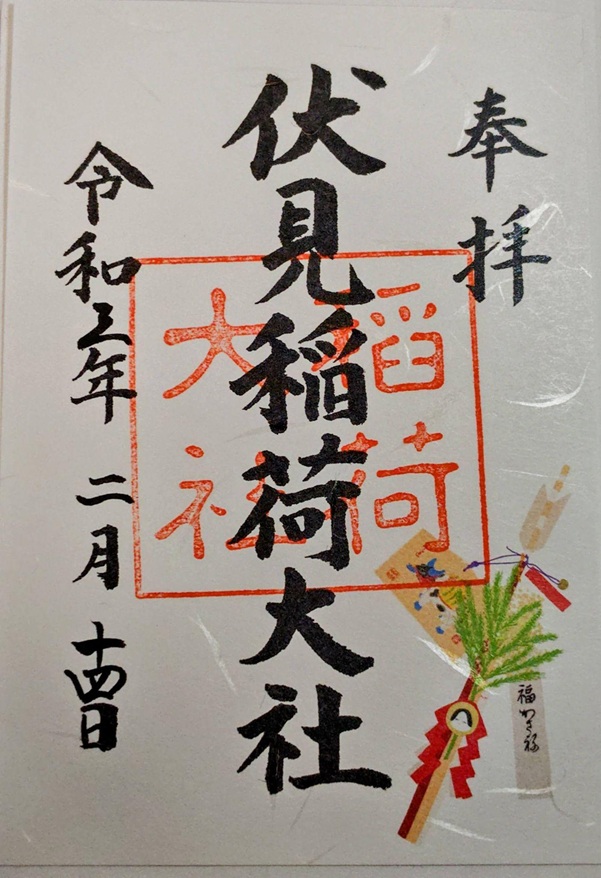 奉拝
伏見稲荷大社
令和三年 二月 十四日
稻荷
大社
福かさね